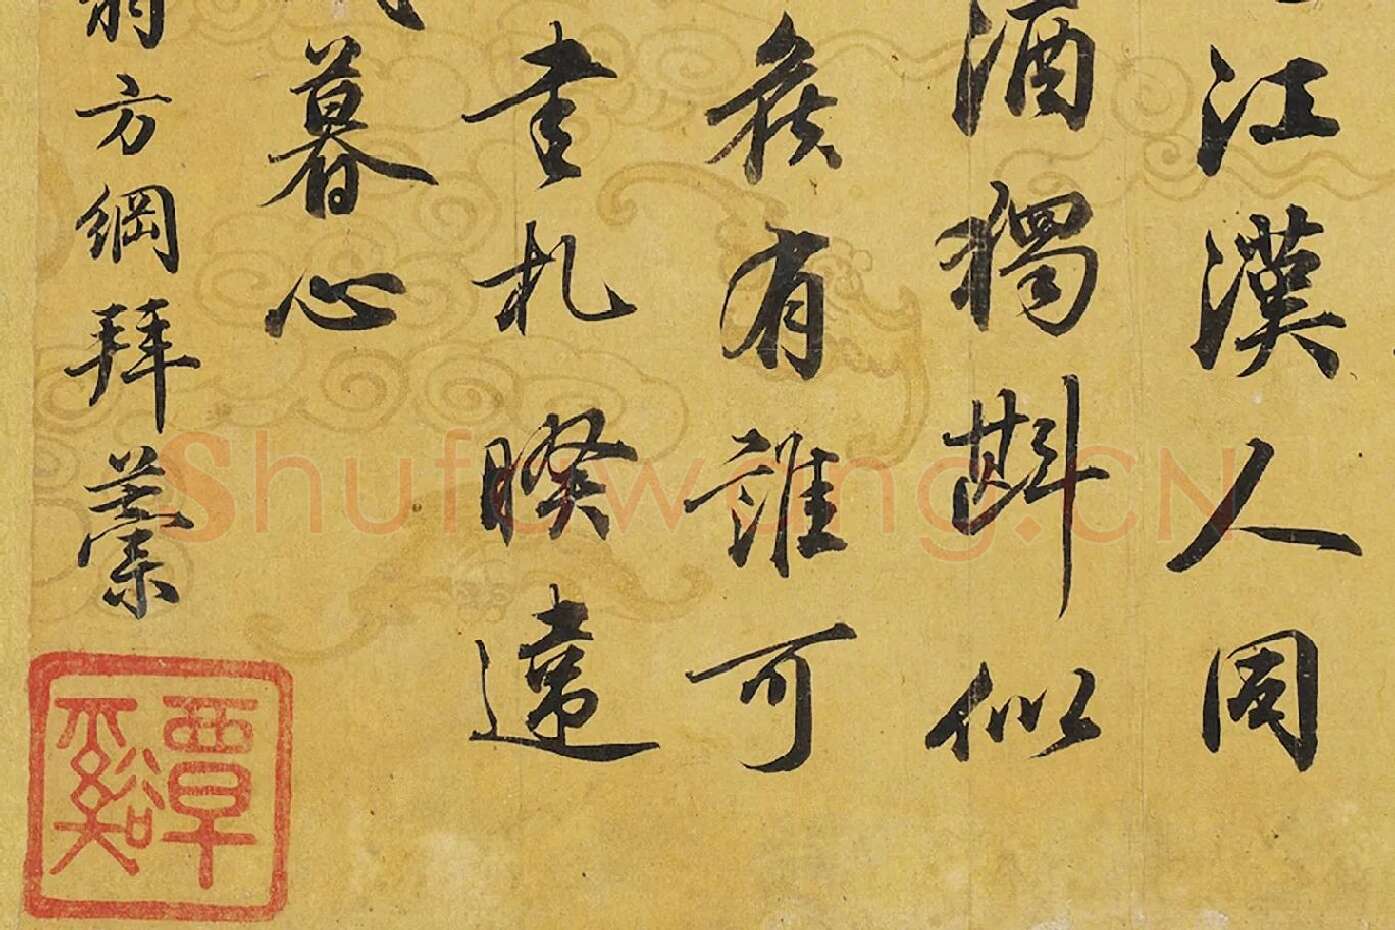 江漢人固
酒獨斟似
矣有誰可
書札暌違
暮心
翁方綱拜藁
覃谿
Shufawang.CN